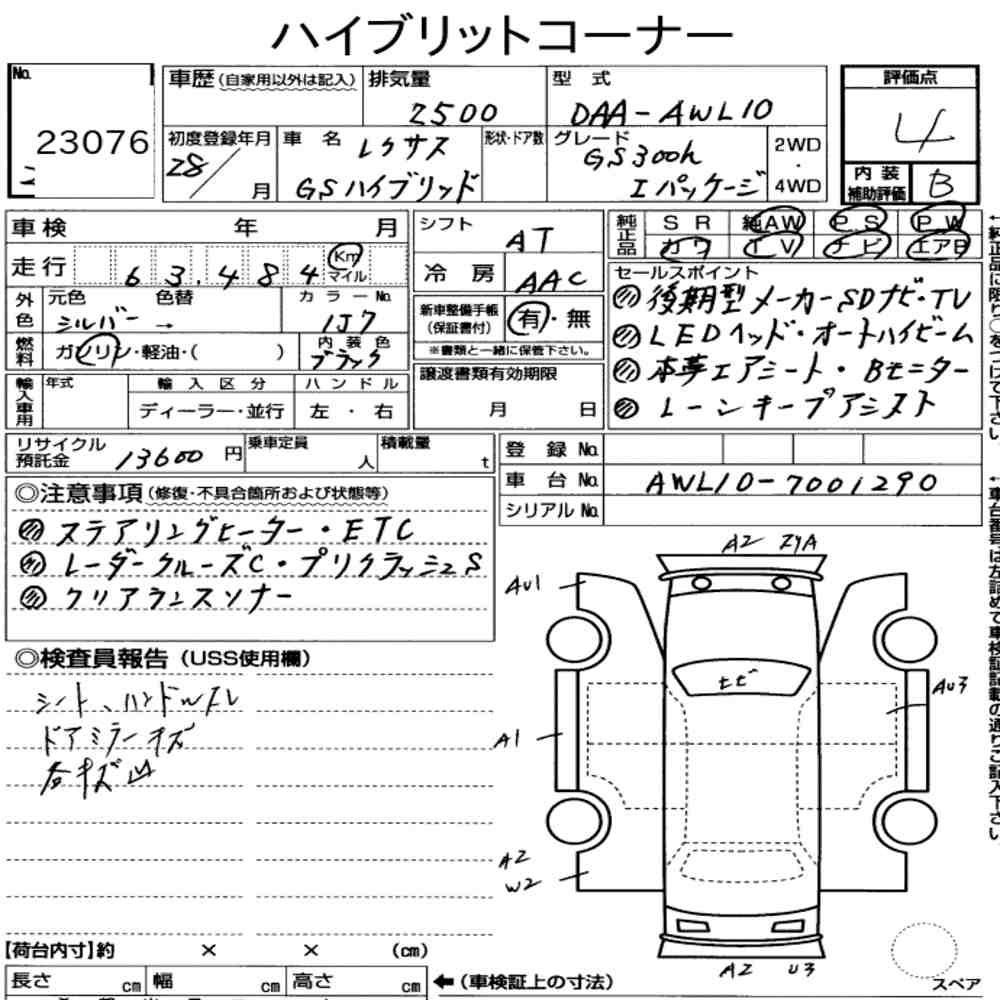 ハイブリットコーナー
No. 23076
車歴(自家用以外は記入) 排気量 2500 型 式 DAA-AWL10 評価点 4
初度登録年月 28/ 月 車 名 レクサス GSハイブリッド 形状・ドア数 グレード GS300h Iパッケージ 2WD・4WD 内装補助評価 B
車検 年 月 シフト AT 純正品 SR 純AW P.S P.W
カワ TV ナビ エアB
走行 63,484 Km マイル 冷房 AAC
外色 元色 シルバー → 色替 カラーNo. 1J7 新車整備手帳(保証書付) 有・無
※書類と一緒に保管下さい。
燃料 ガソリン・軽油・( ) 内装色 ブラック
セールスポイント
後期型メーカーSDナビ・TV
LEDヘッド・オートハイビーム
本革エアシート・Bモニター
レーンキープアシスト
輸入車用 年式 輸入区分 ハンドル 譲渡書類有効期限
ディーラー・並行 左・右 月 日
リサイクル預託金 13600円 乗車定員 人 積載量 t
登録No.
車台No. AWL10-7001290
シリアルNo.
◎注意事項(修復・不具合箇所および状態等)
ステアリングヒーター・ETC
レーダークルーズC・プリクラッシュS
クリアランスソナー
◎検査員報告(USS使用欄)
シート、ハンドルスレ
ドアミラーキズ
各キズ凹
A2
AU1
トビ
AU3
A1
A2
W2
A2 U3
スペア
【荷台内寸】約 × × (cm)
長さ cm 幅 cm 高さ cm ←(車検証上の寸法)
←純正品に限り○をつけて下さい。
←車台番号は左詰めで車検証記載の通りご記入下さい。